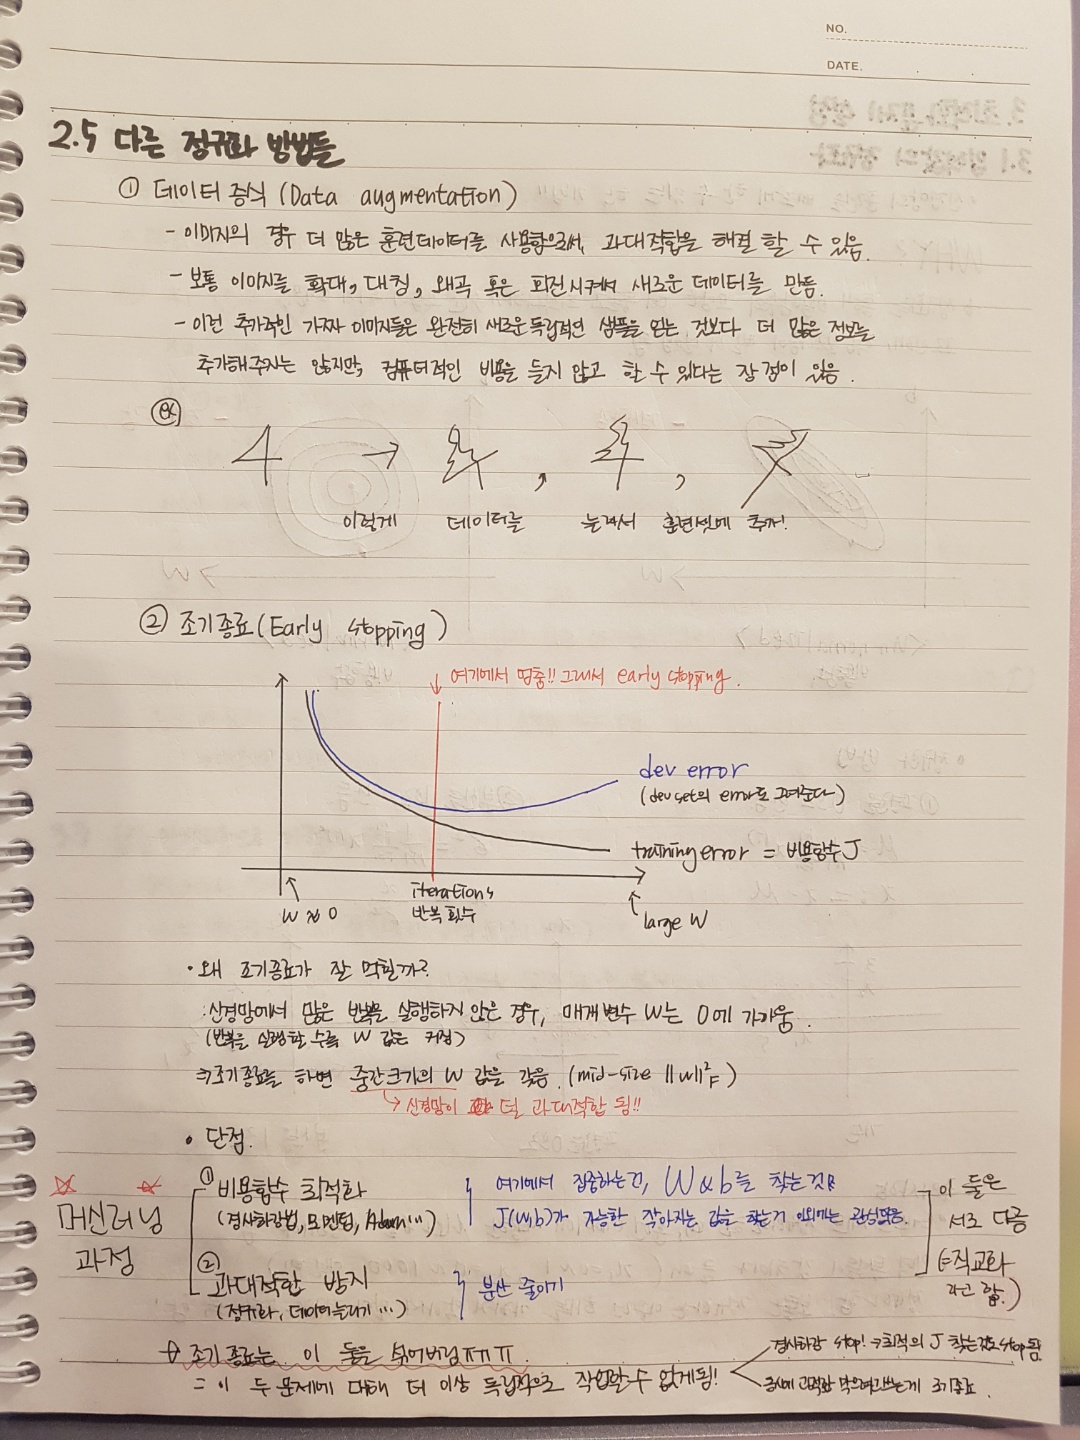 NO.
DATE.
2.5 다른 정규화 방법들
① 데이터 증식 (Data augmentation)
- 이미지의 경우 더 많은 훈련데이터를 사용함으로써, 과대적합을 해결 할 수 있음.
- 보통 이미지를 확대, 대칭, 왜곡 혹은 회전시켜서 새로운 데이터를 만듦.
- 이런 추가적인 가짜 이미지들은 완전히 새로운 독립적인 샘플을 얻는 것보다 더 많은 정보를
추가해주지는 않지만, 컴퓨터적인 비용을 들지 않고 할 수 있다는 장점이 있음.
ex)
4 → 4, 4, 4
이렇게 데이터를 늘려서 훈련셋에 추가!
② 조기종료 (Early stopping)
↓ 여기에서 멈춤!! 그래서 early stopping.
dev error
(dev set의 error도 그려준다)
training error = 비용함수 J
W ≈ 0
iterations
반복 횟수
large W
• 왜 조기종료가 잘 먹힐까?
: 신경망에서 많은 반복을 실행하지 않은 경우, 매개변수 W는 0에 가까움.
(반복을 실행할 수록 W 값은 커짐)
⇒ 조기종료를 하면 중간크기의 W 값을 갖음. (mid-size ||w||²F)
↳ 신경망이 덜 과대적합 됨!!
• 단점.
머신러닝
과정
① 비용함수 최적화
(경사하강법, 모멘텀, Adam...)
여기에서 집중하는건, W & b를 찾는것!
J(w,b)가 가능한 작아지는 값을 찾는거 이외에는 관심없음.
② 과대적합 방지
(정규화, 데이터늘리기 ...)
분산 줄이기
이 둘은
서로 다름
(=직교화
라고 함.)
→ 조기종료는 이 둘을 섞어버림 ㅠㅠ
= 이 두 문제에 대해 더 이상 독립적으로 작업할 수 없게됨!
경사하강 stop! ⇒ 최적의 J 찾는것도 stop 됨
동시에 과적합 막으려고 쓰는게 조기종료.